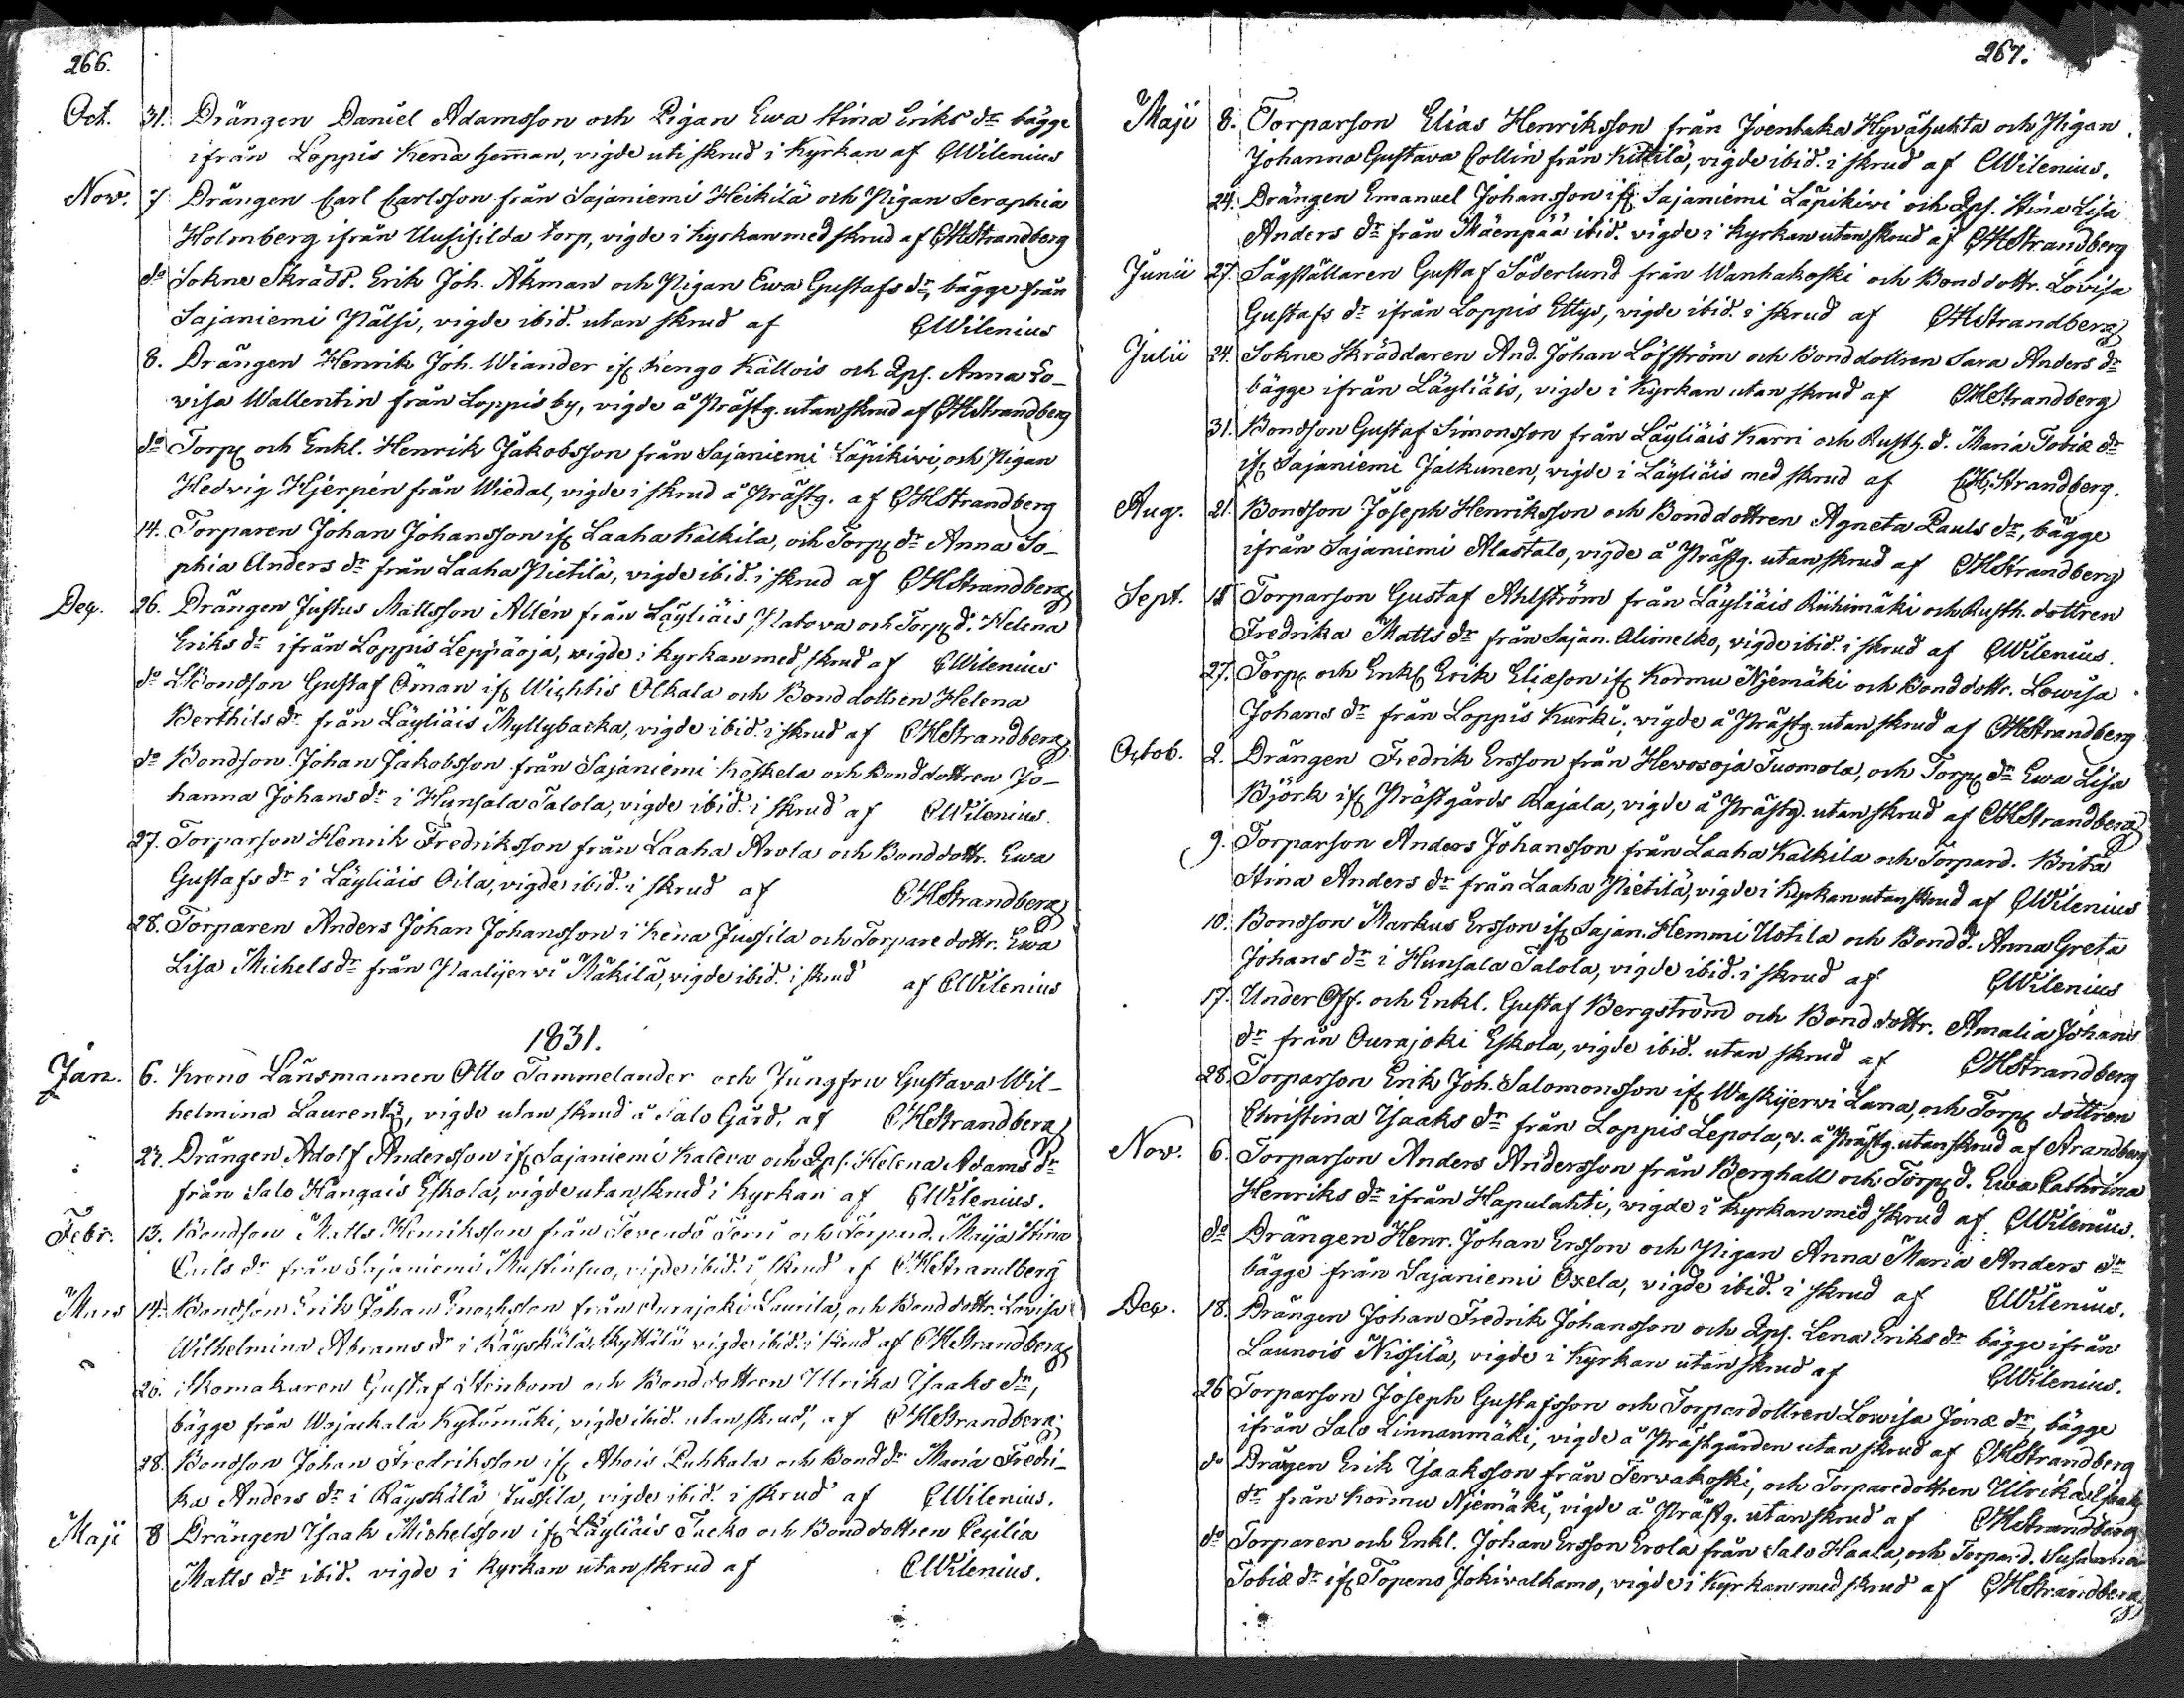 266.
Oct. 31. Drängen Daniel Adamsson och Pigan Ewa Stina Eriks dr bägge
ifrån Loppis Kena hemman, vigde uti skrud i Kyrkan af CWilenius
Nov. 7 Drängen Carl Carlsson från Sajaniemi Heikilä och Pigan Seraphia
Holmberg ifrån Uusisilda torp, vigde i Kyrkan med skrud af CHStrandberg
do Sokne Skrädd. Erik Joh. Åkman och Pigan Ewa Gustafs dr, bägge från
Sajaniemi Pälsi, vigde ibid. utan skrud af CWilenius
8. Drängen Henrik Joh. Wiander if. Kengo Källois och Qps. Anna Lo-
visa Wallentin från Loppis by, vigde å Prästg. utan skrud af CHStrandberg
do Torp. och Enkl. Henrik Jakobsson från Sajaniemi Läpikivi, och Pigan
Hedvig Hjerpén från Wiedal, vigde i skrud å Prästg. af CHStrandberg
14. Torparen Johan Johansson if. Laaha Kalkila, och Torp. dr Anna So-
phia Anders dr från Laaha Pietilä, vigde ibid. i skrud af CHStrandberg
Dec. 26. Drängen Justus Mattsson Allén från Läyliäis Patova och Torp. d. Helena
Eriks dr ifrån Loppis Leppäoja, vigde i Kyrkan med skrud af CWilenius
do Bondson Gustaf Öman if. Wichtis Olkala och Bonddottren Helena
Berthils dr från Läyliäis Myllybacka, vigde ibid. i skrud af CHStrandberg
do Bondson Johan Jakobsson från Sajaniemi Koskela och Bonddottren Jo-
hanna Johans dr i Hunsala Talola, vigde ibid. i skrud af CWilenius.
27. Torparson Henrik Fredriksson från Laaha Arola och Bonddottr. Ewa
Gustafs dr i Läyliäis Oila, vigde ibid. i skrud af CHStrandberg
28. Torparen Anders Johan Johansson i Kena Jussila och Torpare dottr. Ewa
Lisa Michels dr från Naalijerwi Mäkilä, vigde ibid. i skrud af CWilenius
1831.
Jan. 6. Krono Länsmannen Otto Tammelander och Jungfru Gustava Wil-
helmina Laurent, vigde utan skrud å Salo Gård, af CHStrandberg
27. Drängen Adolf Andersson if. Sajaniemi Kaleva och Qps. Helena Adams dr
från Salo Kangais Eskola, vigde utan skrud i Kyrkan af CWilenius.
Febr. 13. Bondson Matts Henriksson från Tevendö Terri och Torpard. Maija Stina
Carls dr från Sajaniemi Mustinsuo, vigde ibid. i skrud af CHStrandberg
Mars 14. Bondson Erik Johan Enochsson från Ourajoki Laurila, och Bonddottr. Lovisa
Wilhelmina Abrams dr i Räyskälä Skyttälä vigde ibid. i skrud af CHStrandberg
20. Skomakaren Gustaf Stenbom och Bonddottren Ulrika Isaaks dr,
bägge från Wojackala Kylömäki, vigde ibid. utan skrud, af CHStrandberg
28. Bondson Johan Fredriksson if. Ahois Puhkala och Bond dr Maria Fredri-
ka Anders dr i Räyskälä Jussila, vigde ibid. i skrud af CWilenius.
Maji 8 Drängen Isaak Michelsson if. Läyliäis Jacko och Bonddottren Cecilia
Matts dr ibid. vigde i Kyrkan utan skrud af CWilenius.
267.
Maji 8. Torparson Elias Henriksson från Joentaka Hyvähuhta och Pigan
Johanna Gustava Collin från Kittilä, vigde ibid. i skrud af CWilenius.
24. Drängen Emanuel Johansson if. Sajaniemi Läpikivi och Qps. Stina Lisa
Anders dr från Mäenpää ibid. vigde i Kyrkan utan skrud af CHStrandberg
Junii 27. Sågställaren Gustaf Söderlund från Wanhakoski och Bonddottr. Lovisa
Gustafs dr ifrån Loppis Ettys, vigde ibid. i skrud af CHStrandberg
Julii 24. Sokne Skräddaren And. Johan Löfström och Bonddottren Sara Anders dr
bägge ifrån Läyliäis, vigde i Kyrkan utan skrud af CHStrandberg
31. Bondson Gustaf Simonsson från Läyliäis Karri och Rusth. d. Maria Tobiæ dr
if. Sajaniemi Jalkunen, vigde i Läyliäis med skrud af CHStrandberg.
Aug. 21. Bondson Joseph Henriksson och Bonddottren Agneta Pauls dr, bägge
ifrån Sajaniemi Alastalo, vigde å Prästg. utan skrud af CHStrandberg
Sept. 18 Torparson Gustaf Ahlström från Läyliäis Riihimäki och Rusth. dottren
Fredrika Matts dr från Sajan. Alimelko, vigde ibid. i skrud af CWilenius.
27. Torp. och Enkl. Erik Eliæson if. Kormu Njemäki och Bonddottr. Lowisa
Johans dr från Loppis Kurki, vigde å Prästg. utan skrud af CHStrandberg
Octob. 2. Drängen Fredrik Ersson från Hevosoja Tuomola, och Torp. dr Ewa Lisa
Björk if. Prästgårds Rajala, vigde å Prästg. utan skrud af CHStrandberg
9. Torparson Anders Johansson från Laaha Kalkila och Torpard. Brita
Stina Anders dr från Laaha Pietilä, vigde i Kyrkan utan skrud af CWilenius
10. Bondson Markus Ersson if. Sajan. Hemmi Uotila och Bondd. Anna Greta
Johans dr i Hunsala Talola, vigde ibid. i skrud af CWilenius
17. Under Off. och Enkl. Gustaf Bergström och Bonddottr. Amalia Johans
dr från Ourajoki Eskola, vigde ibid. utan skrud af CHStrandberg
28. Torparson Erik Joh. Salomonsson if. Waskijerwi Lana, och Torp. dottren
Christina Isaaks dr från Loppis Lepola, v. å Prästg. utan skrud af Strandberg
Nov. 6. Torparson Anders Andersson från Berghall och Torp. d. Ewa Cathrina
Henriks dr ifrån Hapulahti, vigde i Kyrkan med skrud af CWilenius.
do Drängen Henr. Johan Ersson och Pigan Anna Maria Anders dr
bägge från Sajaniemi Oxela, vigde ibid. i skrud af CWilenius.
Dec. 18. Drängen Johan Fredrik Johansson och Qps. Lena Eriks dr bägge ifrån
Launois Nissilä, vigde i Kyrkan utan skrud af CWilenius.
26 Torparson Joseph Gustafsson och Torpardottren Lowisa Jonæ dr, bägge
ifrån Salo Linnanmäki, vigde å Prästgården utan skrud af CHStrandberg
do Drängen Erik Isaaksson från Tervakoski, och Torparedottren Ulrika Isaaks
dr från Kormu Njemäki, vigde å Prästg. utan skrud af CHStrandberg
do Torparen och Enkl. Johan Ersson Erola från Salo Haala, och Torpard. Susanna
Tobiæ dr if. Topeno Jokivalkamo, vigde i Kyrkan med skrud af CHStrandberg